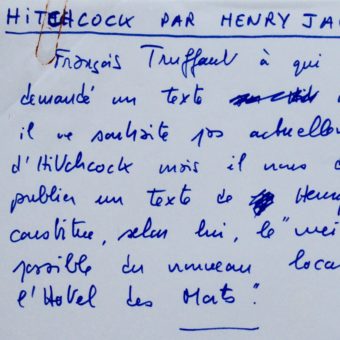 HITCHCOCK PAR HENRY JA
François Truffaut à qui
demandé un texte
il ne souhaite pas actuelle
d'Hitchcock mais il nous
publier un texte de Henry
constitue, selon lui, le "mei
possible du nouveau loca
l'Hôtel des Morts".